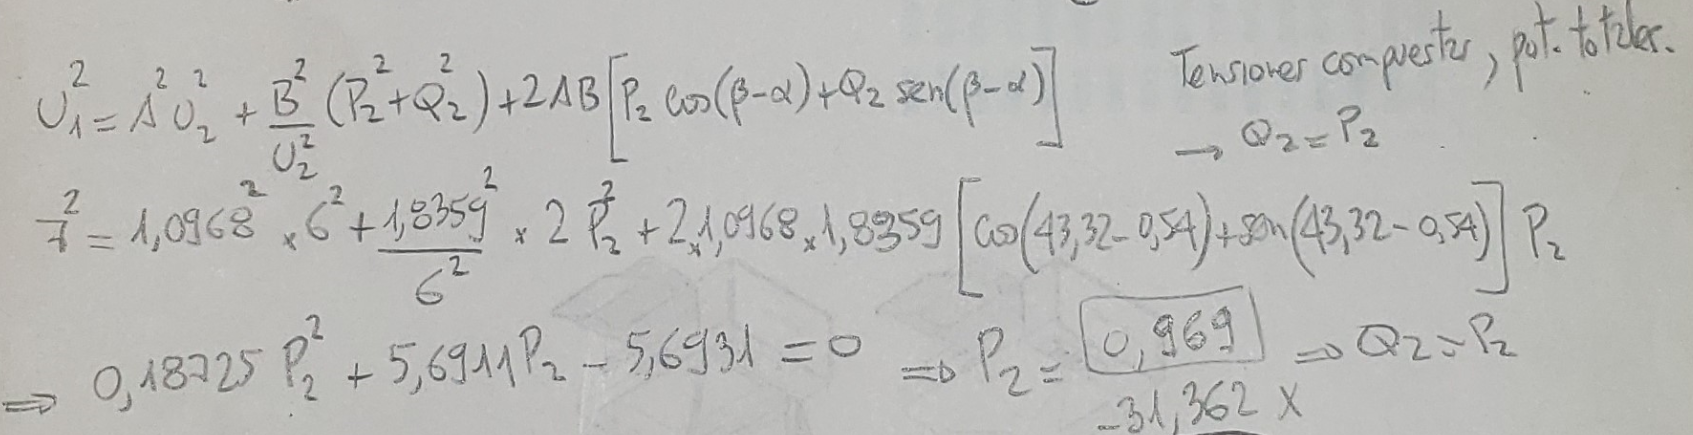 U₁² = A² U₂² + B²/U₂² (P₂² + Q₂²) + 2AB [P₂ cos(β-α) + Q₂ sen(β-α)]
Tensiones compuestas, pot. totales.
→ Q₂ = P₂
7² = 1,0968² × 6² + 1,8359²/6² × 2 P₂² + 2×1,0968×1,8359 [cos(43,32-0,54) + sen(43,32-0,54)] P₂
⇒ 0,18725 P₂² + 5,6911 P₂ - 5,6931 = 0 ⇒ P₂ = 0,969 ⇒ Q₂ = P₂
-31,362 X